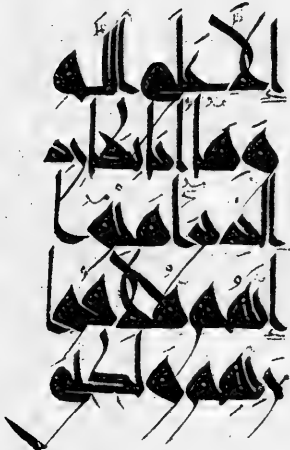 إلا على الله
وما أنا بطارد
الذين آمنوا
إنهم ملاقوا
ربهم ولكني